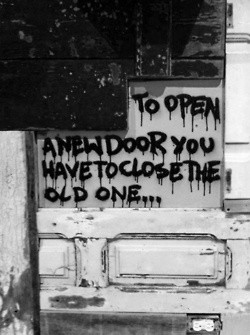 TO OPEN
A NEW DOOR YOU
HAVE TO CLOSE THE
OLD ONE...